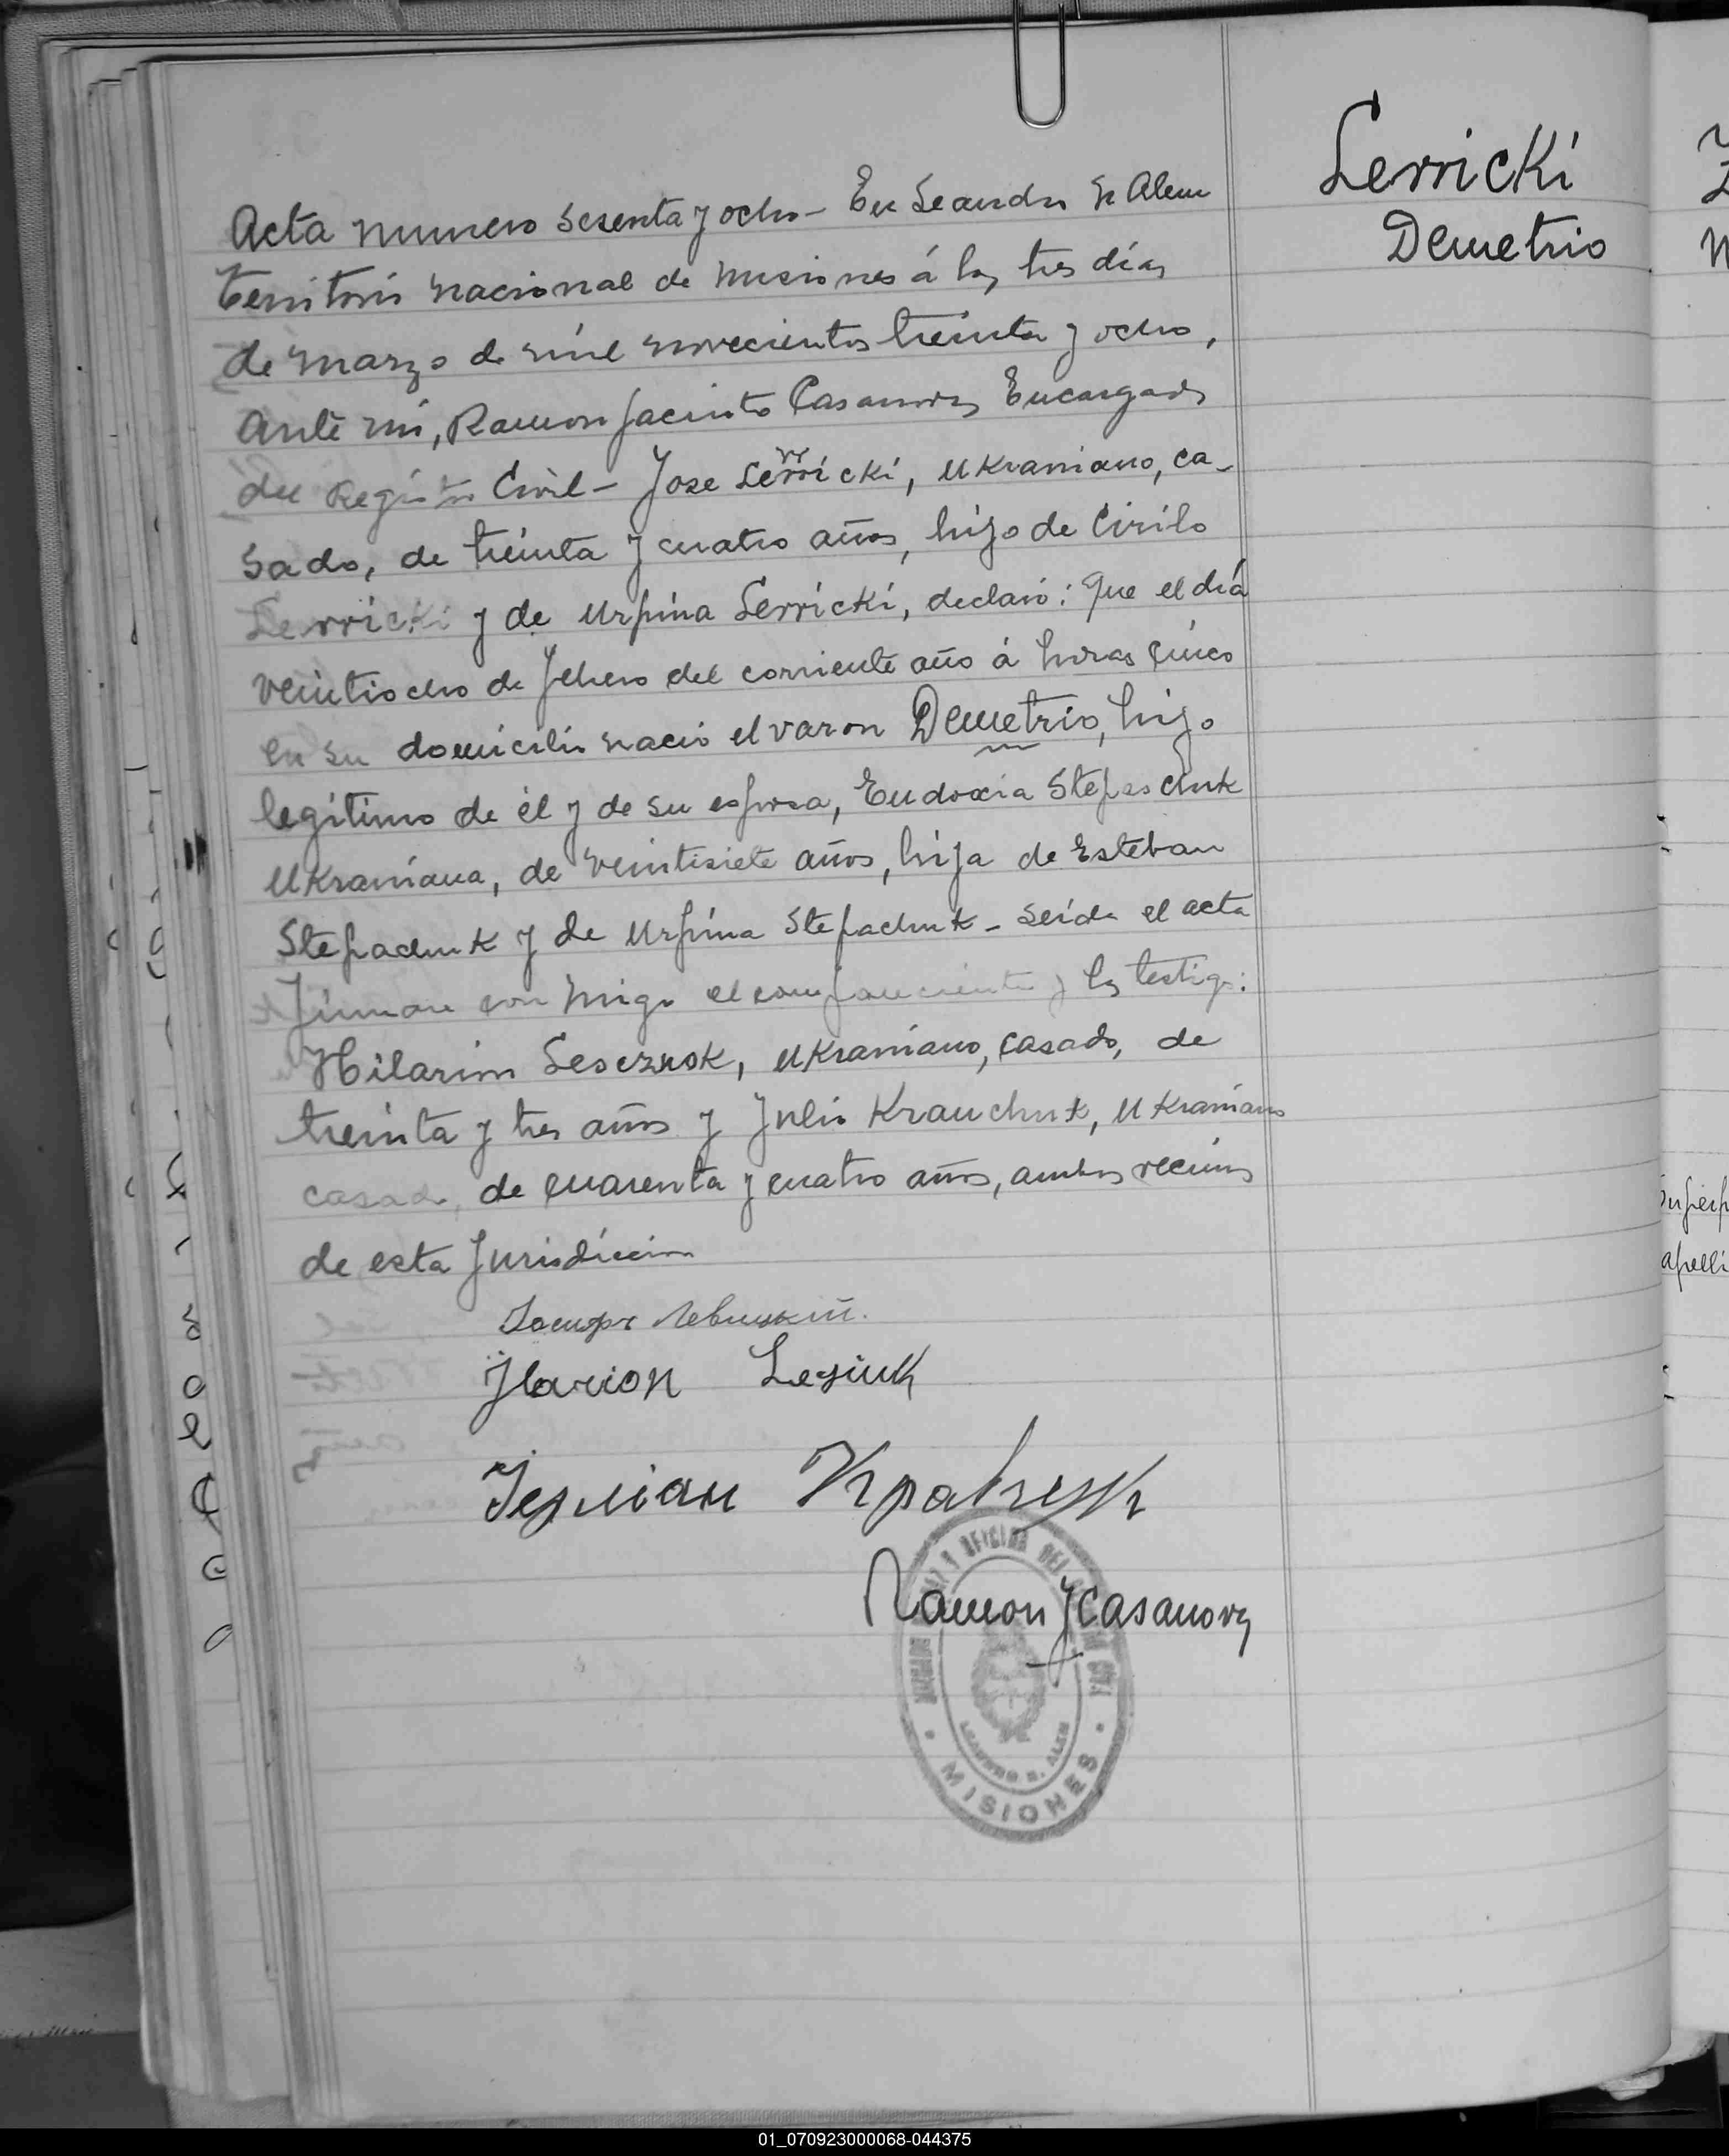 Lerricki
Demetrio
Acta numero sesenta y ocho - En Leandro N Alem
territorio nacional de Misiones á los tres días
de marzo de mil novecientos treinta y ocho,
ante mi, Ramon Jacinto Casanova Encargado
del Registro Civil - Jose Lerricki, ukraniano, ca-
sado, de treinta y cuatro años, hijo de Cirilo
Lerricki y de Urpina Lerricki, declaró: Que el día
veintiocho de febrero del corriente año á horas cinco
en su domicilio nació el varon Demetrio, hijo
legítimo de él y de su esposa, Eudoxia Stepaschuk
ukraniana, de veintisiete años, hija de Esteban
Stepachuk y de Urpina Stepachuk - Leída el acta
firman con migo el compareciente y los testigos:
Hilarion Lesczuk, ukraniano, casado, de
treinta y tres años y Julio Krauchuk, ukraniano
casado, de cuarenta y cuatro años, ambos vecinos
de esta Jurisdiccion
Левицкий.
Jlarion Lesiuk
Кравчук
Ramon J Casanova
OFICINA DEL
LEANDRO N. ALEM
MISIONES
apelli
01_070923000068-044375